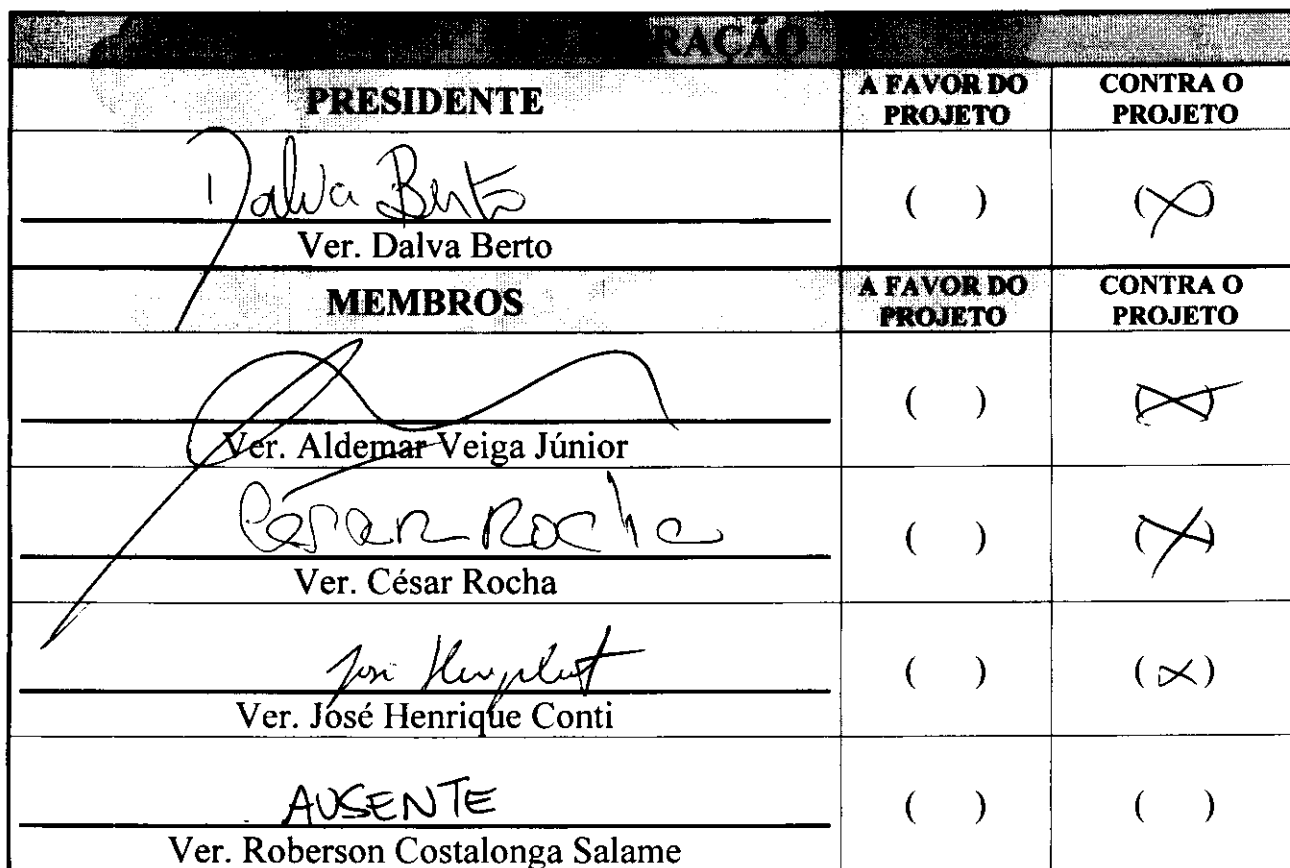 RAÇÃO
PRESIDENTE
A FAVOR DO PROJETO
CONTRA O PROJETO
Dalva Berto
( )
(X)
Ver. Dalva Berto
MEMBROS
A FAVOR DO PROJETO
CONTRA O PROJETO
( )
(X)
Ver. Aldemar Veiga Júnior
César Rocha
( )
(X)
Ver. César Rocha
José
( )
(X)
Ver. José Henrique Conti
AUSENTE
( )
( )
Ver. Roberson Costalonga Salame